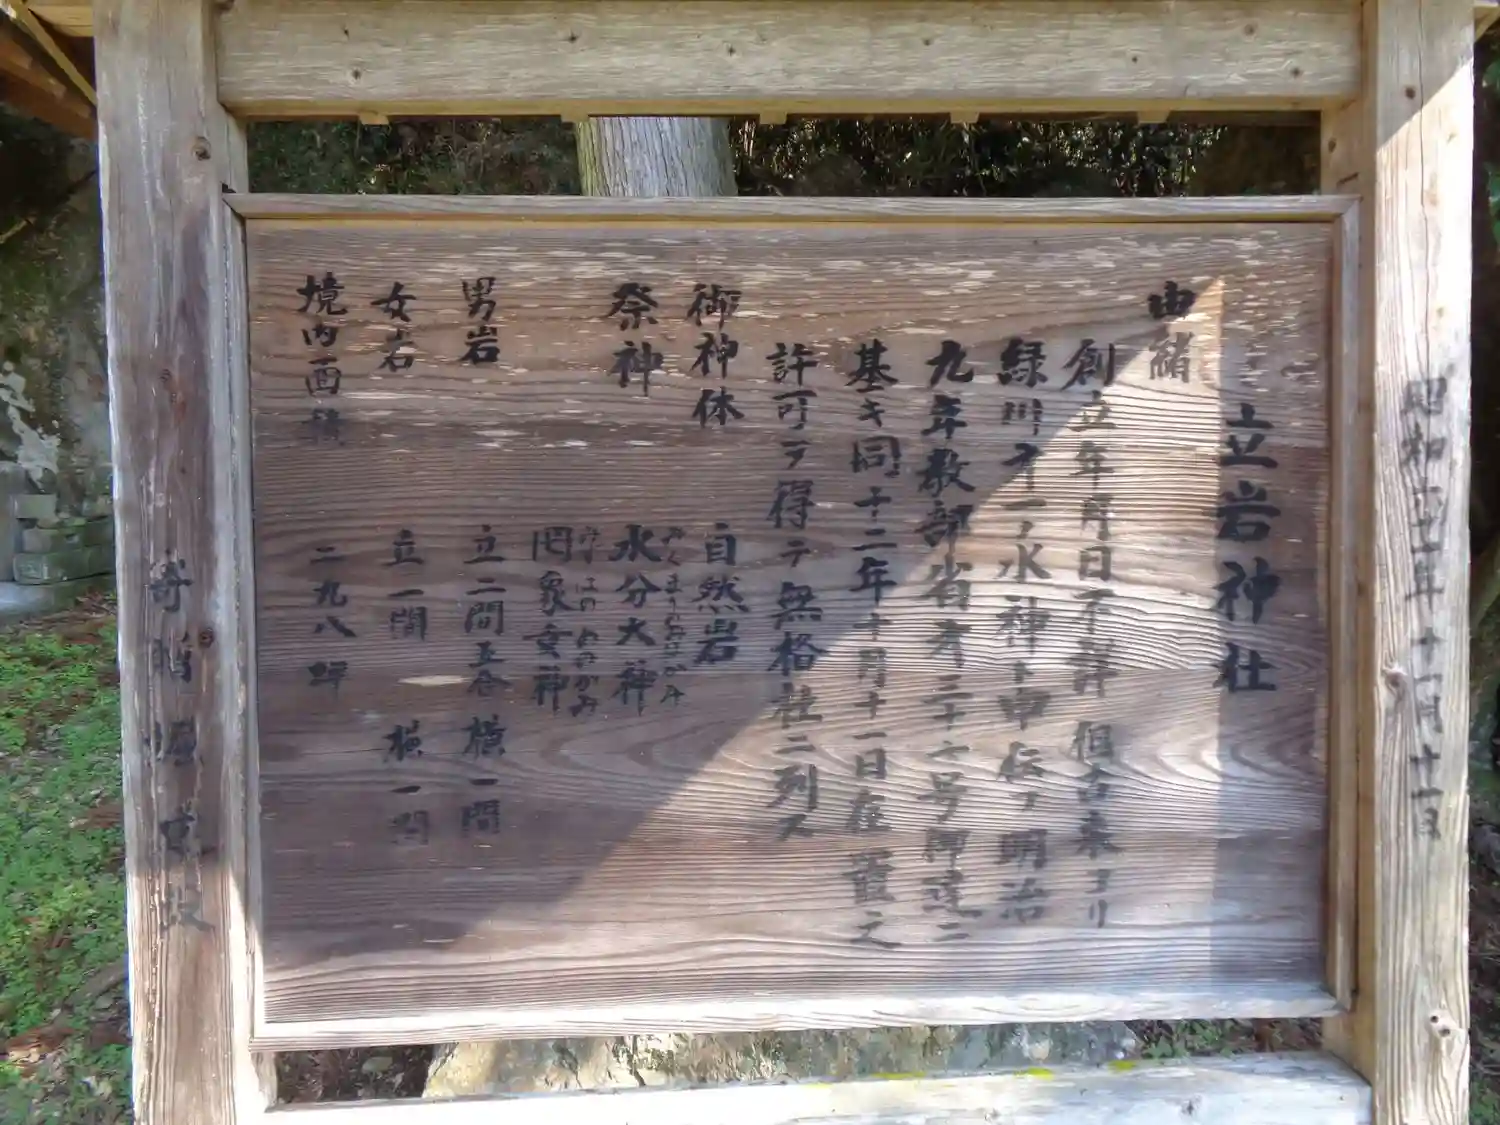 立岩神社
由緒
創立年月日不詳 但古来ヨリ
緑川才一ノ水神ト申伝フ明治
九年教部省才三十七号御達ニ
基キ同十二年十月十一日在置之
許可ヲ得テ無格社ニ列ス
御神体 自然岩
祭神 水分大神
みくまりのおほかみ
罔象女神
みずはのめのかみ
男岩 立二間五合 横一間
女岩 立一間 横一間
境内面積 二九八坪
昭和六十一年十一月十一日